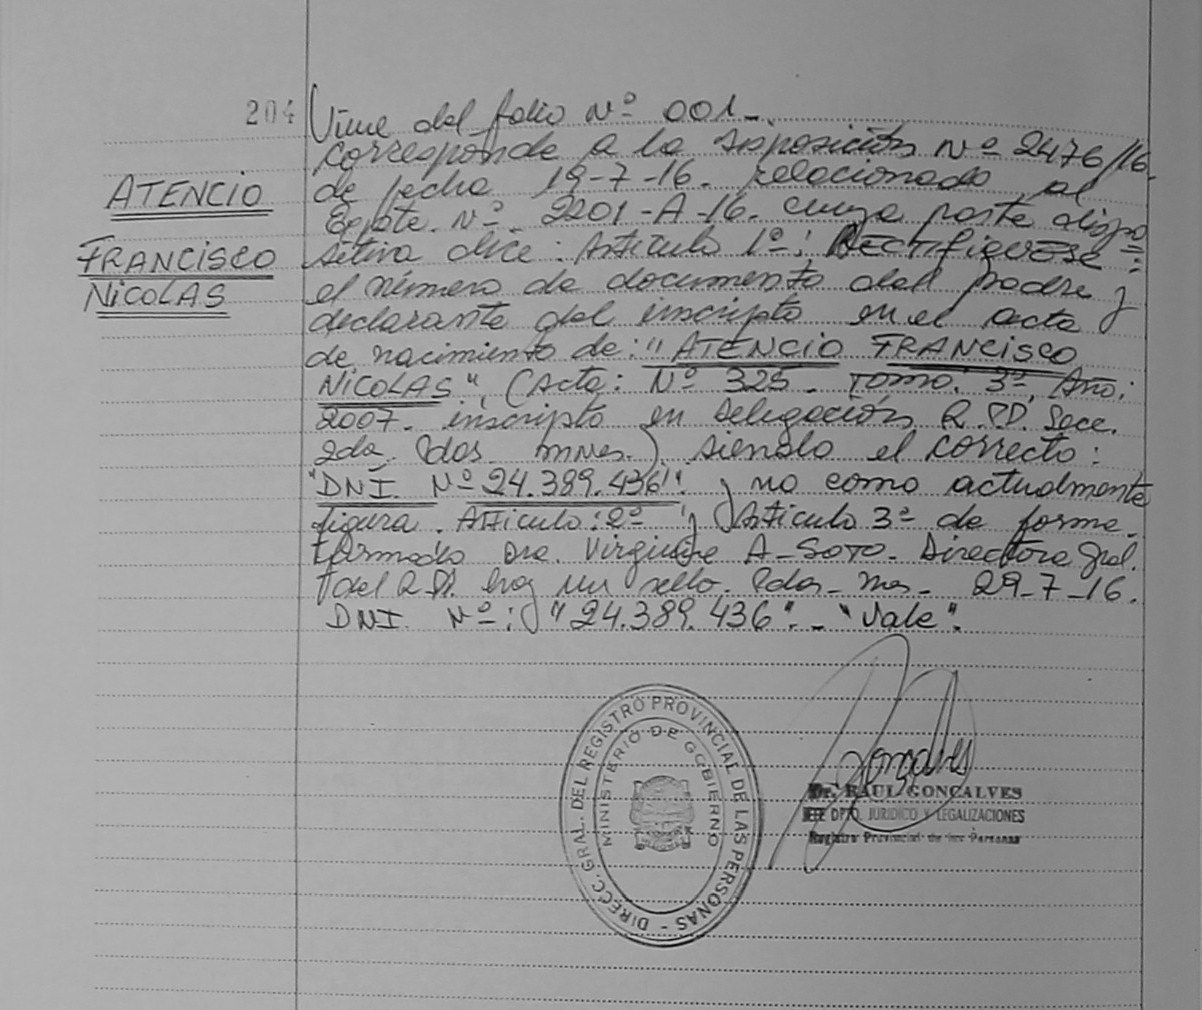 204
Viene del folio Nº 001_
corresponde a la Disposición Nº 2476/16.
ATENCIO
de fecha 19-7-16. relacionado al
Expte. Nº 2201-A-16. cuya parte dispo=
FRANCISCO
sitiva dice: Articulo 1º: RECTIFIQUESE:
NICOLAS
el número de documento del padre y
declarante del inscripto en el acta
de nacimiento de: "ATENCIO FRANCISCO
NICOLAS", (Acta: Nº 325. Tomo: 3º, Año:
2007. inscripto en Delegación R.PP. Secc.
2da. Pdas. Mnes.) siendo el correcto:
"DNI. Nº 24.389.436". y no como actualmente
figura. Articulo: 2º y Articulo 3º de forma.
Firmado Dra. Virginia A-SOTO. Directora Gral.
del R.PP. hay un sello. Pdas- Mnes- 29-7-16.
DNI. Nº: "24.389.436". - "Vale".
DIRECC. GRAL. DEL REGISTRO PROVINCIAL DE LAS PERSONAS -
MINISTERIO DE GOBIERNO
Gonçalves
Dr. RAUL GONCALVES
JEFE DPTO. JURIDICO Y LEGALIZACIONES
Registro Provincial de las Personas